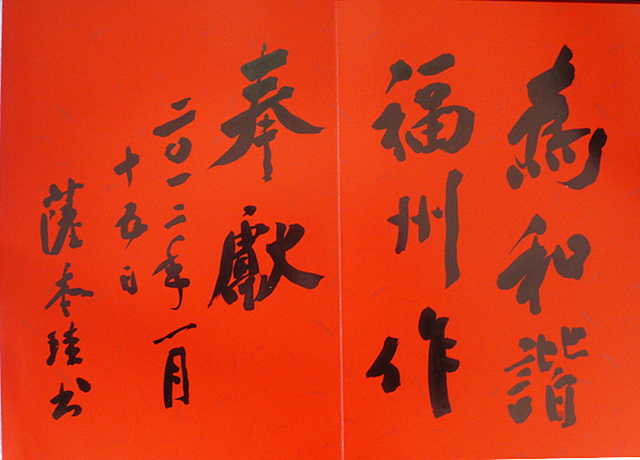 為和諧
福州作
奉獻
二〇一二年一月
十五日
薩本珪書